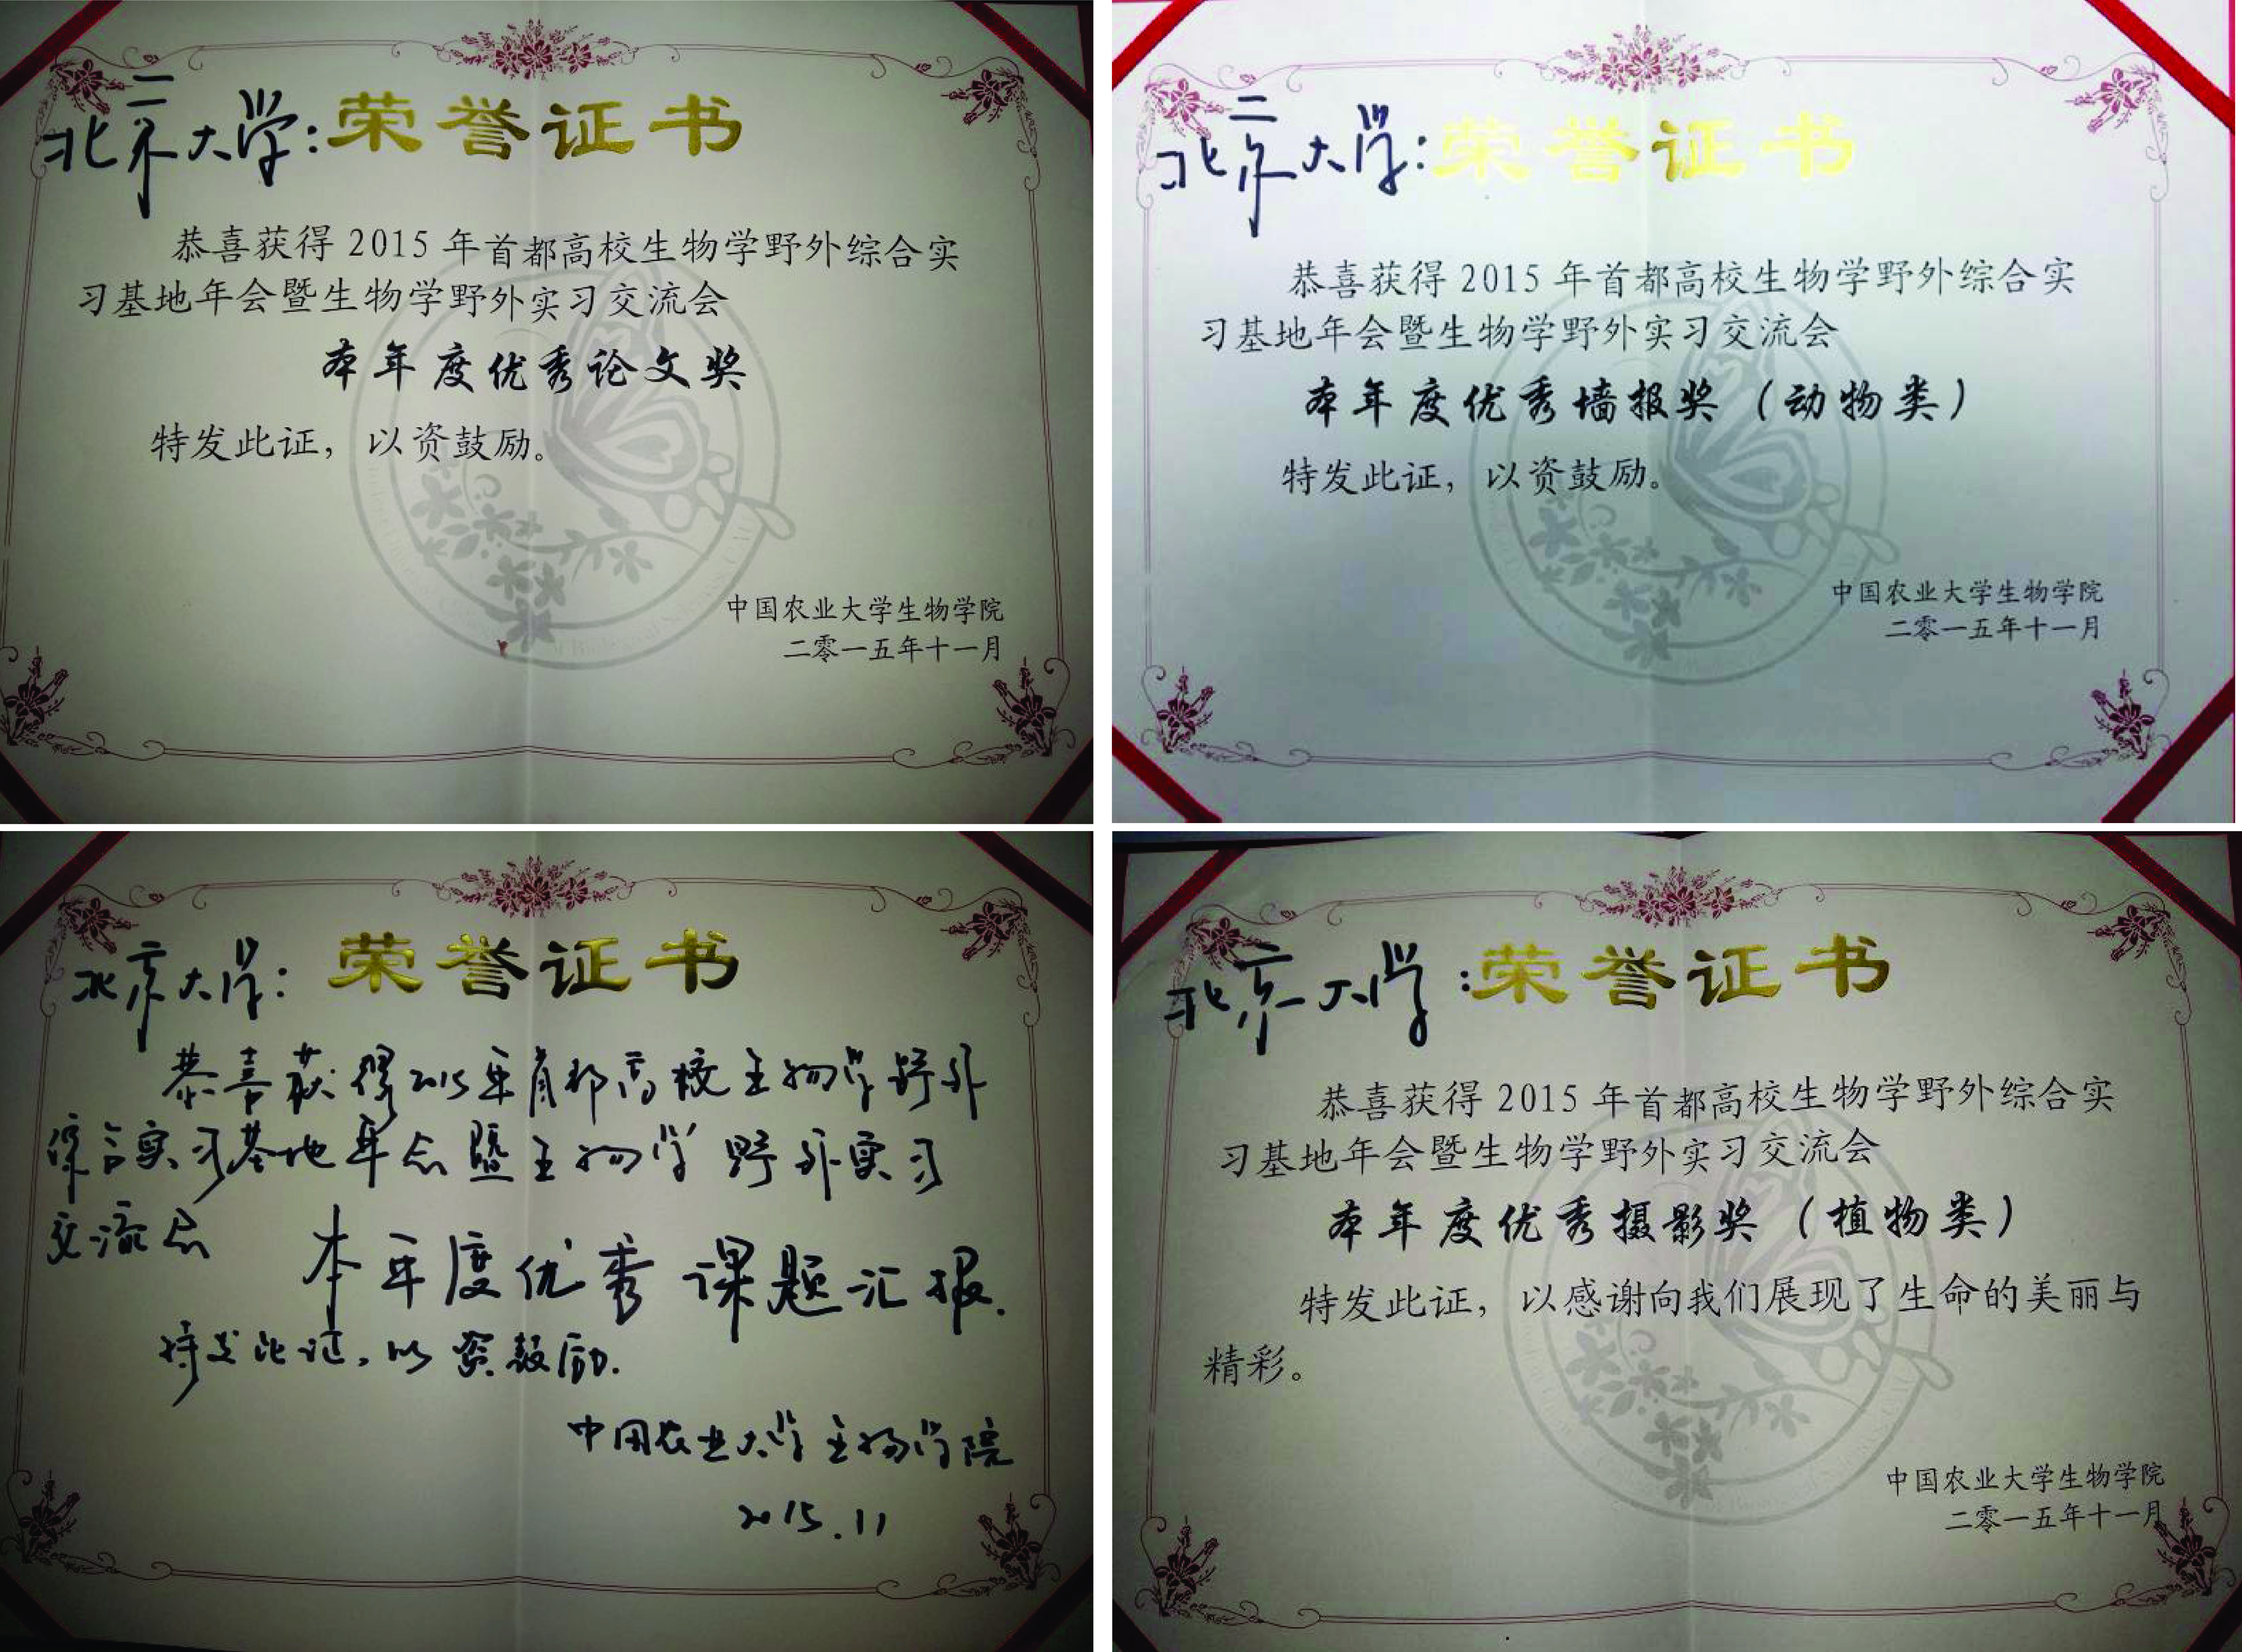 北京大学：荣誉证书
恭喜获得 2015 年首都高校生物学野外综合实
习基地年会暨生物学野外实习交流会
本年度优秀论文奖
特发此证，以资鼓励。
中国农业大学生物学院
二零一五年十一月
北京大学：荣誉证书
恭喜获得 2015 年首都高校生物学野外综合实
习基地年会暨生物学野外实习交流会
本年度优秀墙报奖（动物类）
特发此证，以资鼓励。
中国农业大学生物学院
二零一五年十一月
北京大学：荣誉证书
恭喜获得2015年首都高校生物学野外
综合实习基地年会暨生物学野外实习
交流会
本年度优秀课题汇报.
特发此证，以资鼓励.
中国农业大学生物学院
2015.11
北京大学：荣誉证书
恭喜获得 2015 年首都高校生物学野外综合实
习基地年会暨生物学野外实习交流会
本年度优秀摄影奖（植物类）
特发此证，以感谢向我们展现了生命的美丽与
精彩。
中国农业大学生物学院
二零一五年十一月